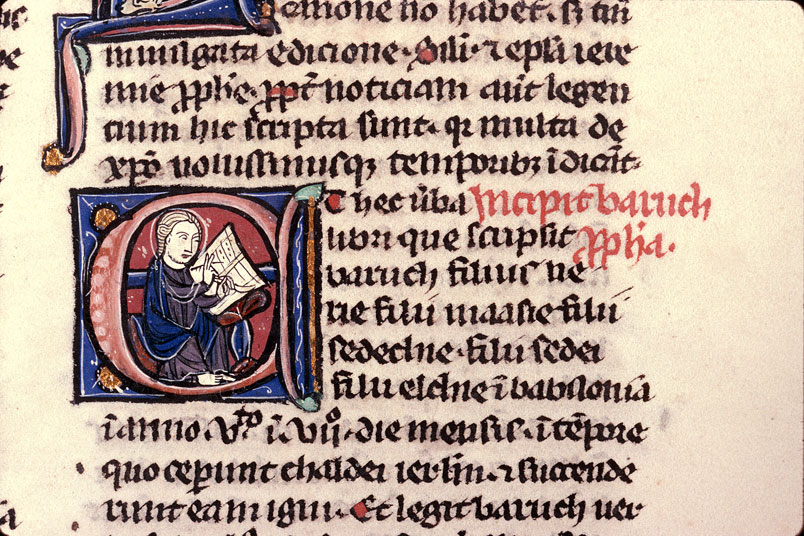 emone nō habet̄. sꝫ tm̄
in uulgata edicione. Sil'i. ⁊ ep̄la iere
mie ꝓph̄e. ꝓpt̄ noticiam aut̄ legen
cium hic sc̄ripta sunt. qꝛ multa de
xp̄o nouissimisqꝫ temporibꝫ īdicāt.
T hec ūba Incipit baruch
libri que scripsit ꝓph̄a.
baruch filius ne
rie filii maasie filii
sedechie. filii sedei
filii elchie ī babilonia
ī anno v̊to ī vii̊. die mensis. ī tēpore
quo ceperunt chaldei ierl̄m. ⁊ succende
runt eam igni. Et legit baruch uer